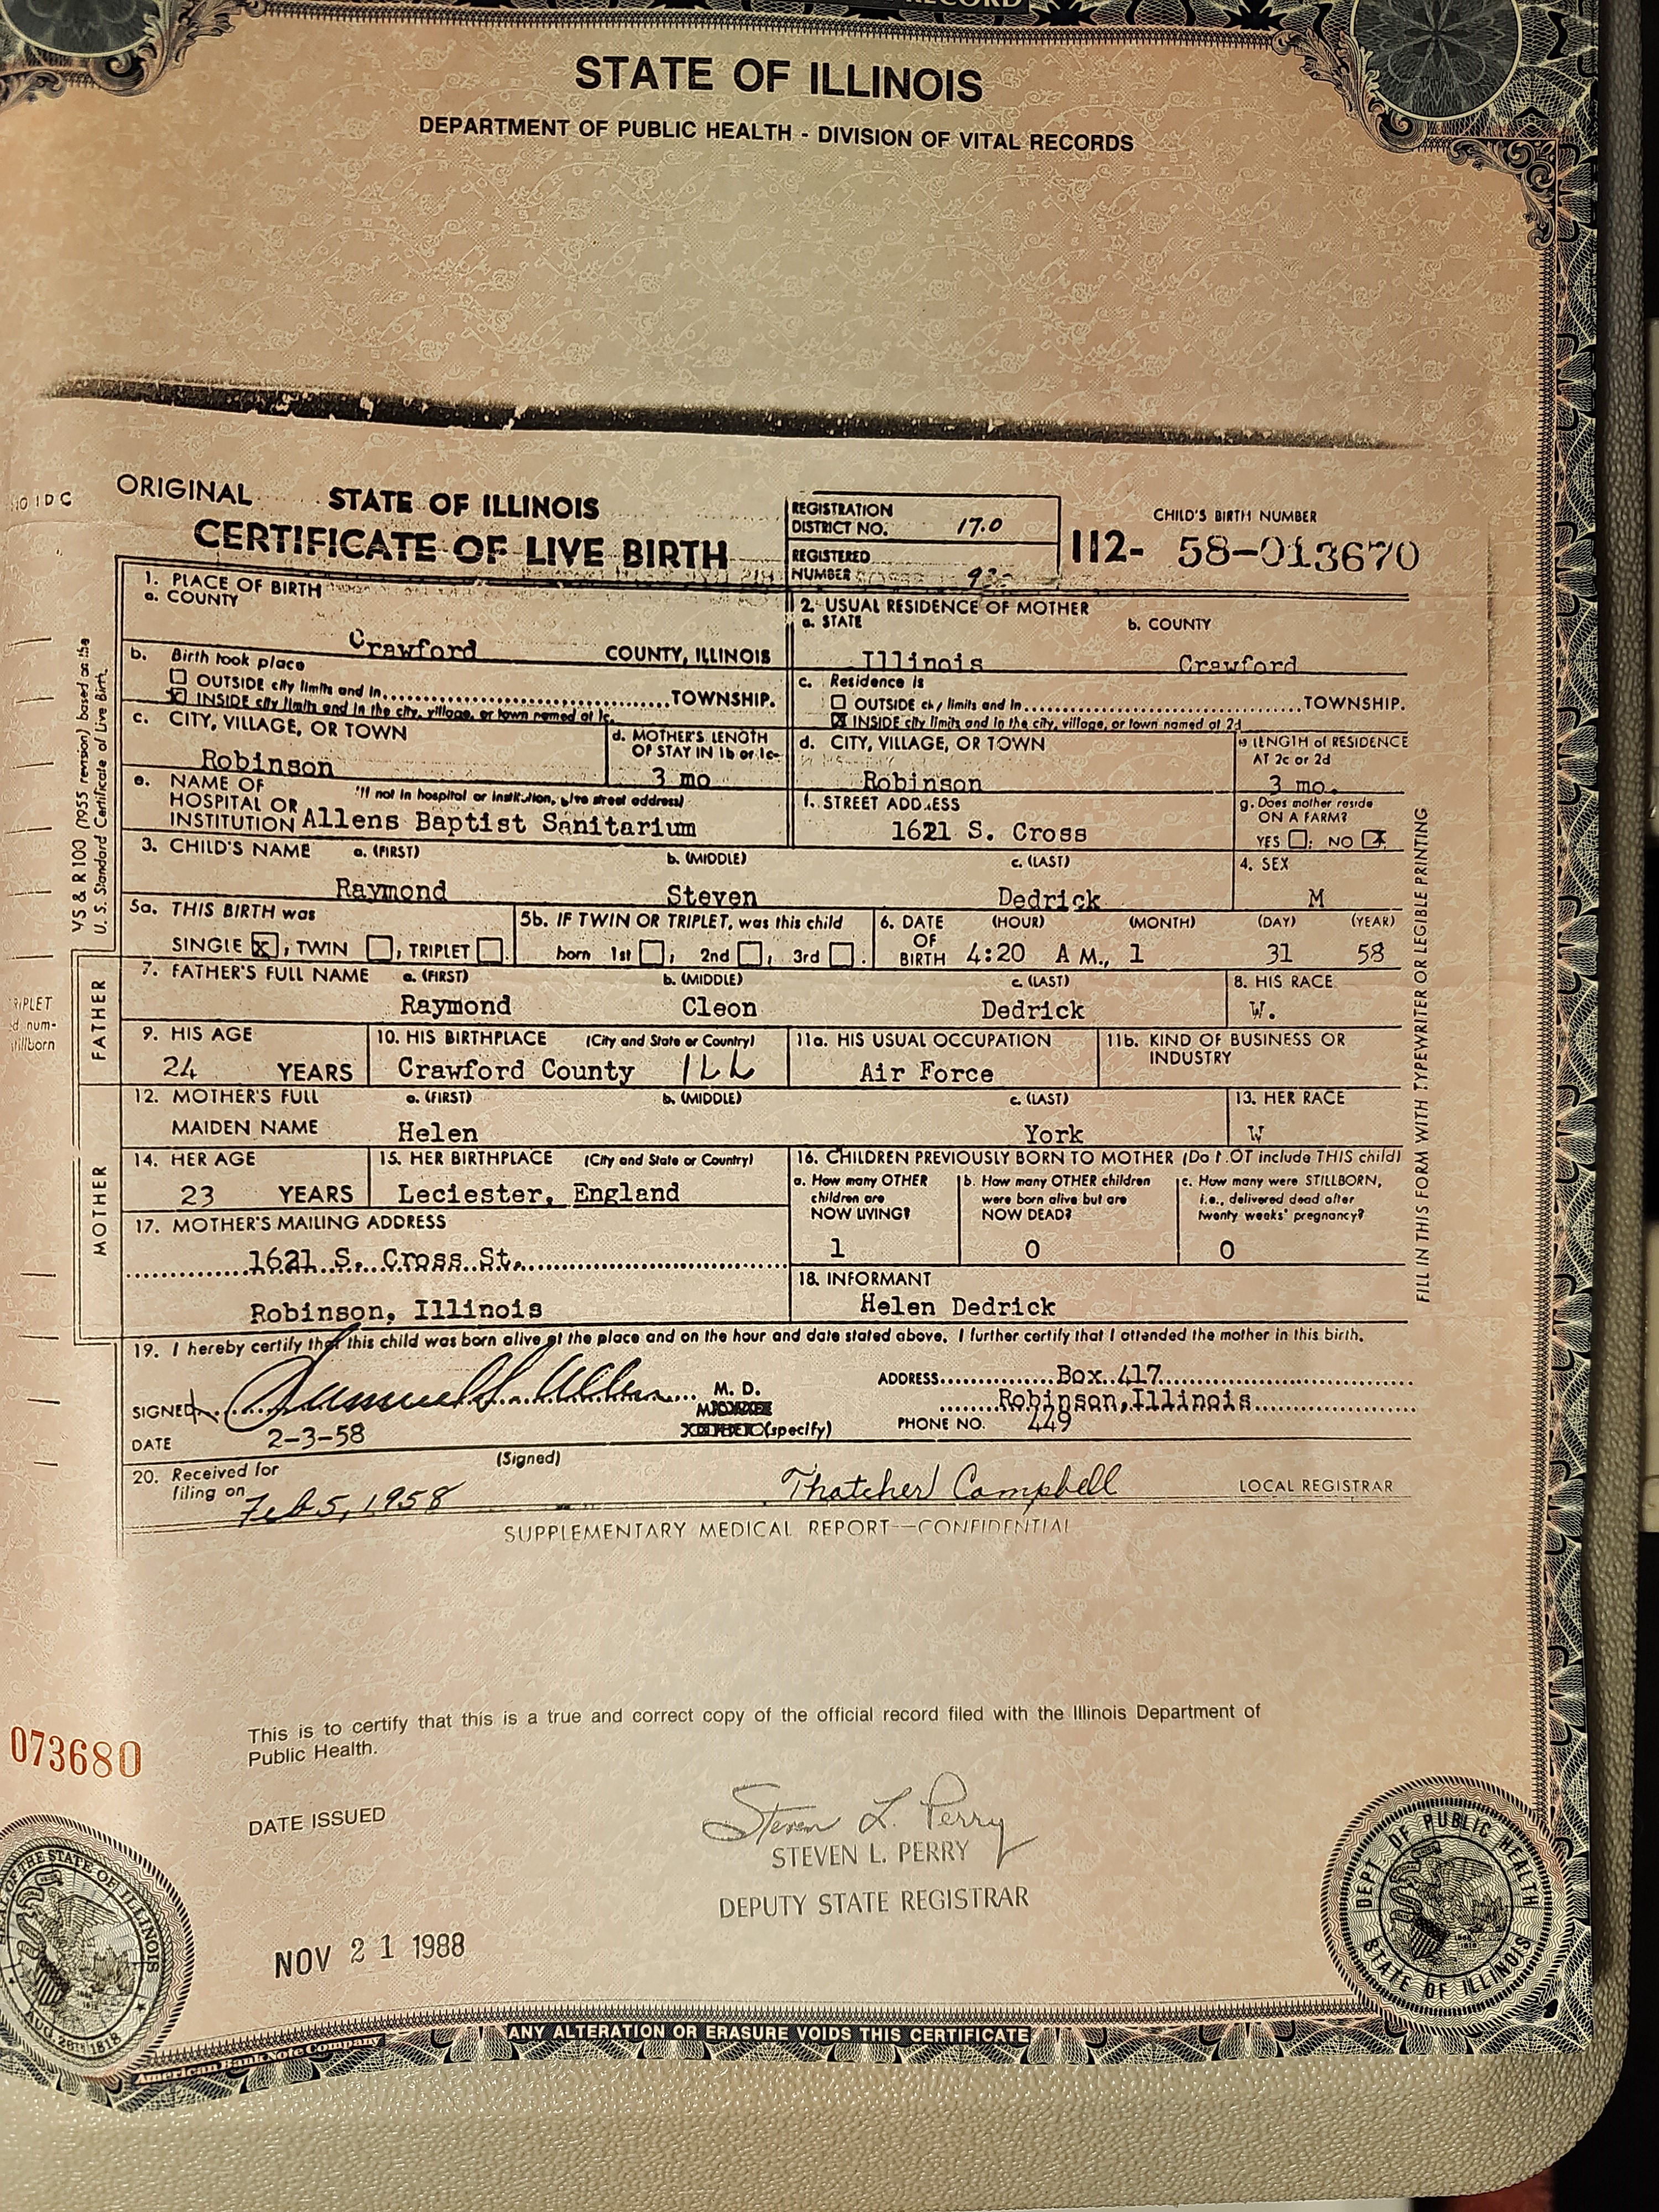 RECORD
STATE OF ILLINOIS
DEPARTMENT OF PUBLIC HEALTH - DIVISION OF VITAL RECORDS
ORIGINAL
STATE OF ILLINOIS
CERTIFICATE OF LIVE BIRTH
REGISTRATION
DISTRICT NO. 17.0
REGISTERED
NUMBER
CHILD'S BIRTH NUMBER
112- 58-013670
1. PLACE OF BIRTH
a. COUNTY
Crawford COUNTY, ILLINOIS
b. Birth took place
OUTSIDE city limits and in TOWNSHIP.
INSIDE city limits and in the city, village, or town named at 1c.
c. CITY, VILLAGE, OR TOWN
Robinson
d. MOTHER'S LENGTH
OF STAY IN 1b or 1c
3 mo
e. NAME OF
HOSPITAL OR
INSTITUTION
(If not in hospital or institution, give street address)
Allens Baptist Sanitarium
2. USUAL RESIDENCE OF MOTHER
a. STATE b. COUNTY
Illinois Crawford
c. Residence is
OUTSIDE city limits and in TOWNSHIP.
X INSIDE city limits and in the city, village, or town named at 2d
d. CITY, VILLAGE, OR TOWN
Robinson
e LENGTH of RESIDENCE
AT 2c or 2d
3 mo.
f. STREET ADDRESS
1621 S. Cross
g. Does mother reside
ON A FARM?
YES ; NO X
3. CHILD'S NAME a. (FIRST) b. (MIDDLE) c. (LAST)
Raymond Steven Dedrick
4. SEX
M
5a. THIS BIRTH was
SINGLE X, TWIN , TRIPLET .
5b. IF TWIN OR TRIPLET, was this child
born 1st , 2nd , 3rd .
6. DATE (HOUR) (MONTH) (DAY) (YEAR)
OF
BIRTH 4:20 A M., 1 31 58
FATHER
7. FATHER'S FULL NAME a. (FIRST) b. (MIDDLE) c. (LAST)
Raymond Cleon Dedrick
8. HIS RACE
W.
9. HIS AGE
24 YEARS
10. HIS BIRTHPLACE (City and State or Country)
Crawford County ILL
11a. HIS USUAL OCCUPATION
Air Force
11b. KIND OF BUSINESS OR
INDUSTRY
MOTHER
12. MOTHER'S FULL a. (FIRST) b. (MIDDLE) c. (LAST)
MAIDEN NAME Helen York
13. HER RACE
W
14. HER AGE
23 YEARS
15. HER BIRTHPLACE (City and State or Country)
Leciester, England
16. CHILDREN PREVIOUSLY BORN TO MOTHER (Do NOT include THIS child)
a. How many OTHER
children are
NOW LIVING?
1
b. How many OTHER children
were born alive but are
NOW DEAD?
0
c. How many were STILLBORN,
i.e., delivered dead after
twenty weeks' pregnancy?
0
17. MOTHER'S MAILING ADDRESS
1621 S. Cross St.
Robinson, Illinois
18. INFORMANT
Helen Dedrick
19. I hereby certify that this child was born alive at the place and on the hour and date stated above. I further certify that I attended the mother in this birth.
SIGNED M. D.
(specify)
DATE 2-3-58
ADDRESS Box 417
Robinson, Illinois
PHONE NO. 449
(Signed)
20. Received for
filing on Feb 5, 1958
Thatcher Campbell LOCAL REGISTRAR
SUPPLEMENTARY MEDICAL REPORT—CONFIDENTIAL
VS & R 100 (1955 revision) based on the
U. S. Standard Certificate of Live Birth.
FILL IN THIS FORM WITH TYPEWRITER OR LEGIBLE PRINTING
This is to certify that this is a true and correct copy of the official record filed with the Illinois Department of
Public Health.
073680
DATE ISSUED
NOV 21 1988
Steven L. Perry
STEVEN L. PERRY
DEPUTY STATE REGISTRAR
SEAL OF THE STATE OF ILLINOIS
AUG. 26TH 1818
DEPT. OF PUBLIC HEALTH
STATE OF ILLINOIS
American Bank Note Company
ANY ALTERATION OR ERASURE VOIDS THIS CERTIFICATE